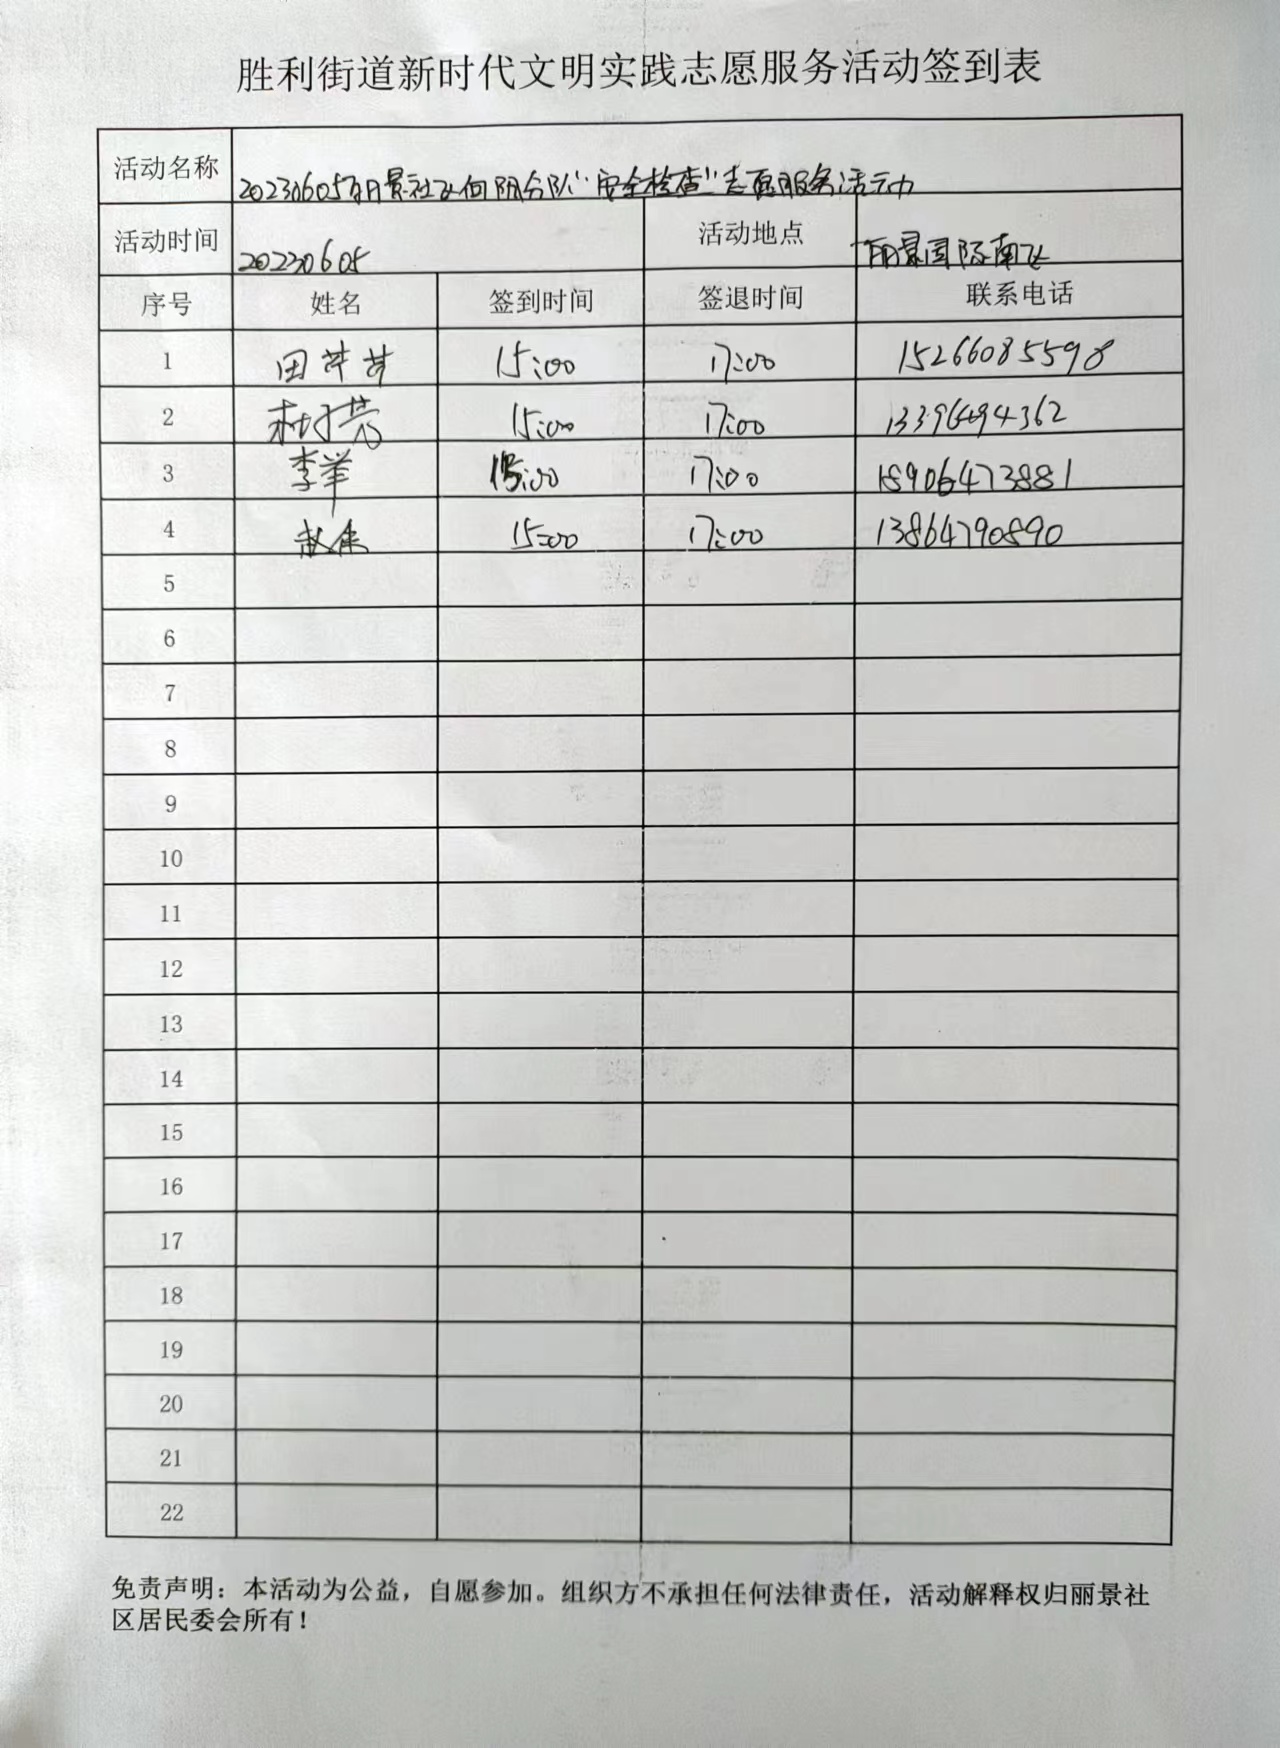 胜利街道新时代文明实践志愿服务活动签到表
活动名称 20230605丽景社区向阴分队"安全检查"志愿服务活动
活动时间 20230605 活动地点 丽景国际南区
序号 姓名 签到时间 签退时间 联系电话
1 田芊芊 15:00 17:00 15266085598
2 15:00 17:00 13396494362
3 李羊 15:00 17:00 18906473881
4 15:00 17:00 13864790890
5
6
7
8
9
10
11
12
13
14
15
16
17
18
19
20
21
22
免责声明：本活动为公益，自愿参加。组织方不承担任何法律责任，活动解释权归丽景社
区居民委会所有！